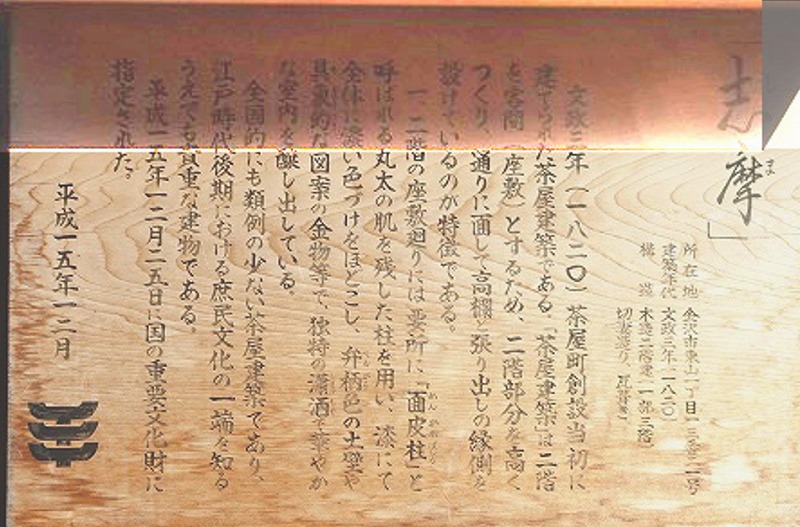 志摩」
ま
所在地 金沢市東山一丁目一三番二一号
建築年代 文政三年(一八二〇)
構造 木造二階建(一部三階)
切妻造り、瓦葺き
文政三年(一八二〇)茶屋町創設当初に
建てられた茶屋建築である。「茶屋建築」は二階
を客間(座敷)とするため、二階部分を高く
つくり、通りに面して高欄と張り出しの縁側を
設けているのが特徴である。
一、二階の座敷廻りには要所に「面皮柱」と
めんかわばしら
呼ばれる丸太の肌を残した柱を用い、漆にて
全体に濃い色づけをほどこし、弁柄色の土壁や
具象的な図案の金物等で、独特の瀟洒で華やか
な室内を醸し出している。
全国的にも類例の少ない茶屋建築であり、
江戸時代後期における庶民文化の一端を知る
うえでも貴重な建物である。
平成一五年一二月二五日に国の重要文化財に
指定された。
平成一五年一二月